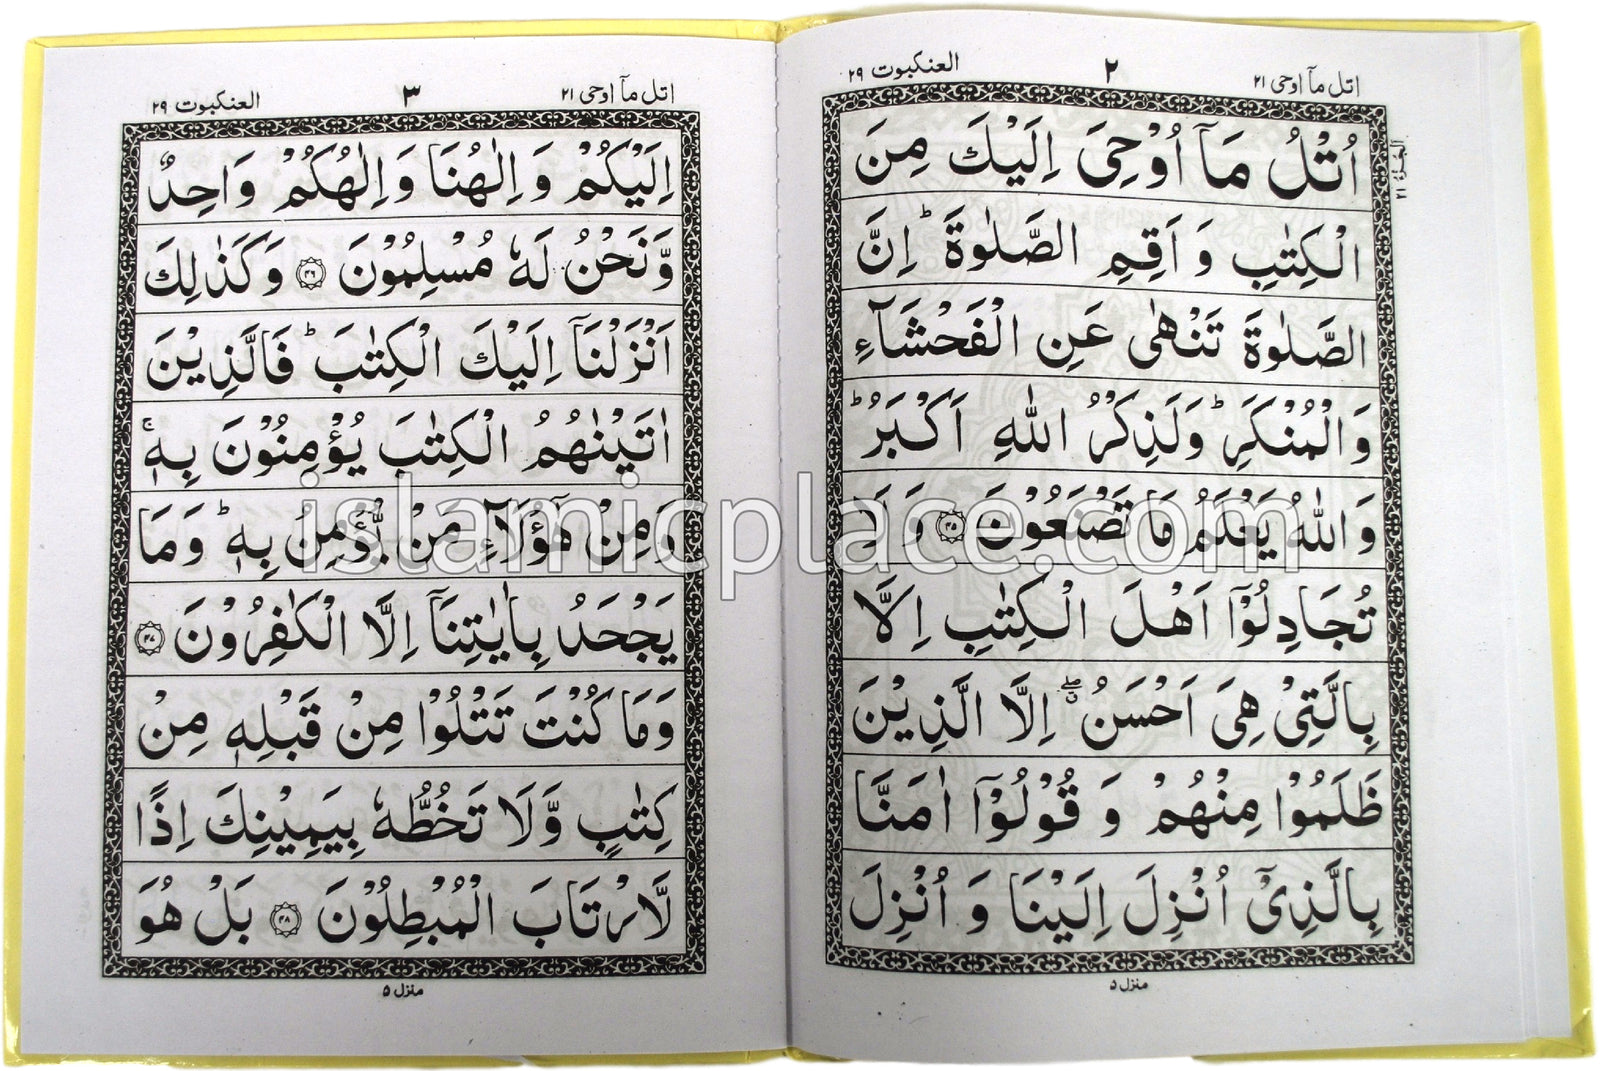 اتل مآ اوحی ۲۱
۲
العنکبوت ۲۹
الجزء ۲۱
اُتْلُ مَآ اُوْحِیَ اِلَیْكَ مِنَ
الْكِتٰبِ وَ اَقِمِ الصَّلٰوةَ ؕ اِنَّ
الصَّلٰوةَ تَنْهٰى عَنِ الْفَحْشَآءِ
وَ الْمُنْكَرِ ؕ وَلَذِكْرُ اللّٰهِ اَكْبَرُ ؕ
وَ اللّٰهُ یَعْلَمُ مَا تَصْنَعُوْنَ ۴۵ وَ لَا
تُجَادِلُوْۤا اَهْلَ الْكِتٰبِ اِلَّا
بِالَّتِیْ هِیَ اَحْسَنُ ۖ اِلَّا الَّذِیْنَ
ظَلَمُوْا مِنْهُمْ وَ قُوْلُوْۤا اٰمَنَّا
بِالَّذِیْۤ اُنْزِلَ اِلَیْنَا وَ اُنْزِلَ
منزل ۵
اتل مآ اوحی ۲۱
۳
العنکبوت ۲۹
اِلَیْكُمْ وَ اِلٰهُنَا وَ اِلٰهُكُمْ وَاحِدٌ
وَّنَحْنُ لَهٗ مُسْلِمُوْنَ ۴۶ وَ كَذٰلِكَ
اَنْزَلْنَاۤ اِلَیْكَ الْكِتٰبَ ؕ فَالَّذِیْنَ
اٰتَیْنٰهُمُ الْكِتٰبَ یُؤْمِنُوْنَ بِهٖ ۚ
وَ مِنْ هٰۤؤُلَآءِ مَنْ یُّؤْمِنُ بِهٖ ؕ وَ مَا
یَجْحَدُ بِاٰیٰتِنَاۤ اِلَّا الْكٰفِرُوْنَ ۴۷
وَ مَا كُنْتَ تَتْلُوْا مِنْ قَبْلِهٖ مِنْ
كِتٰبٍ وَّ لَا تَخُطُّهٗ بِیَمِیْنِكَ اِذًا
لَّارْتَابَ الْمُبْطِلُوْنَ ۴۸ بَلْ هُوَ
منزل ۵
islamicplace.com